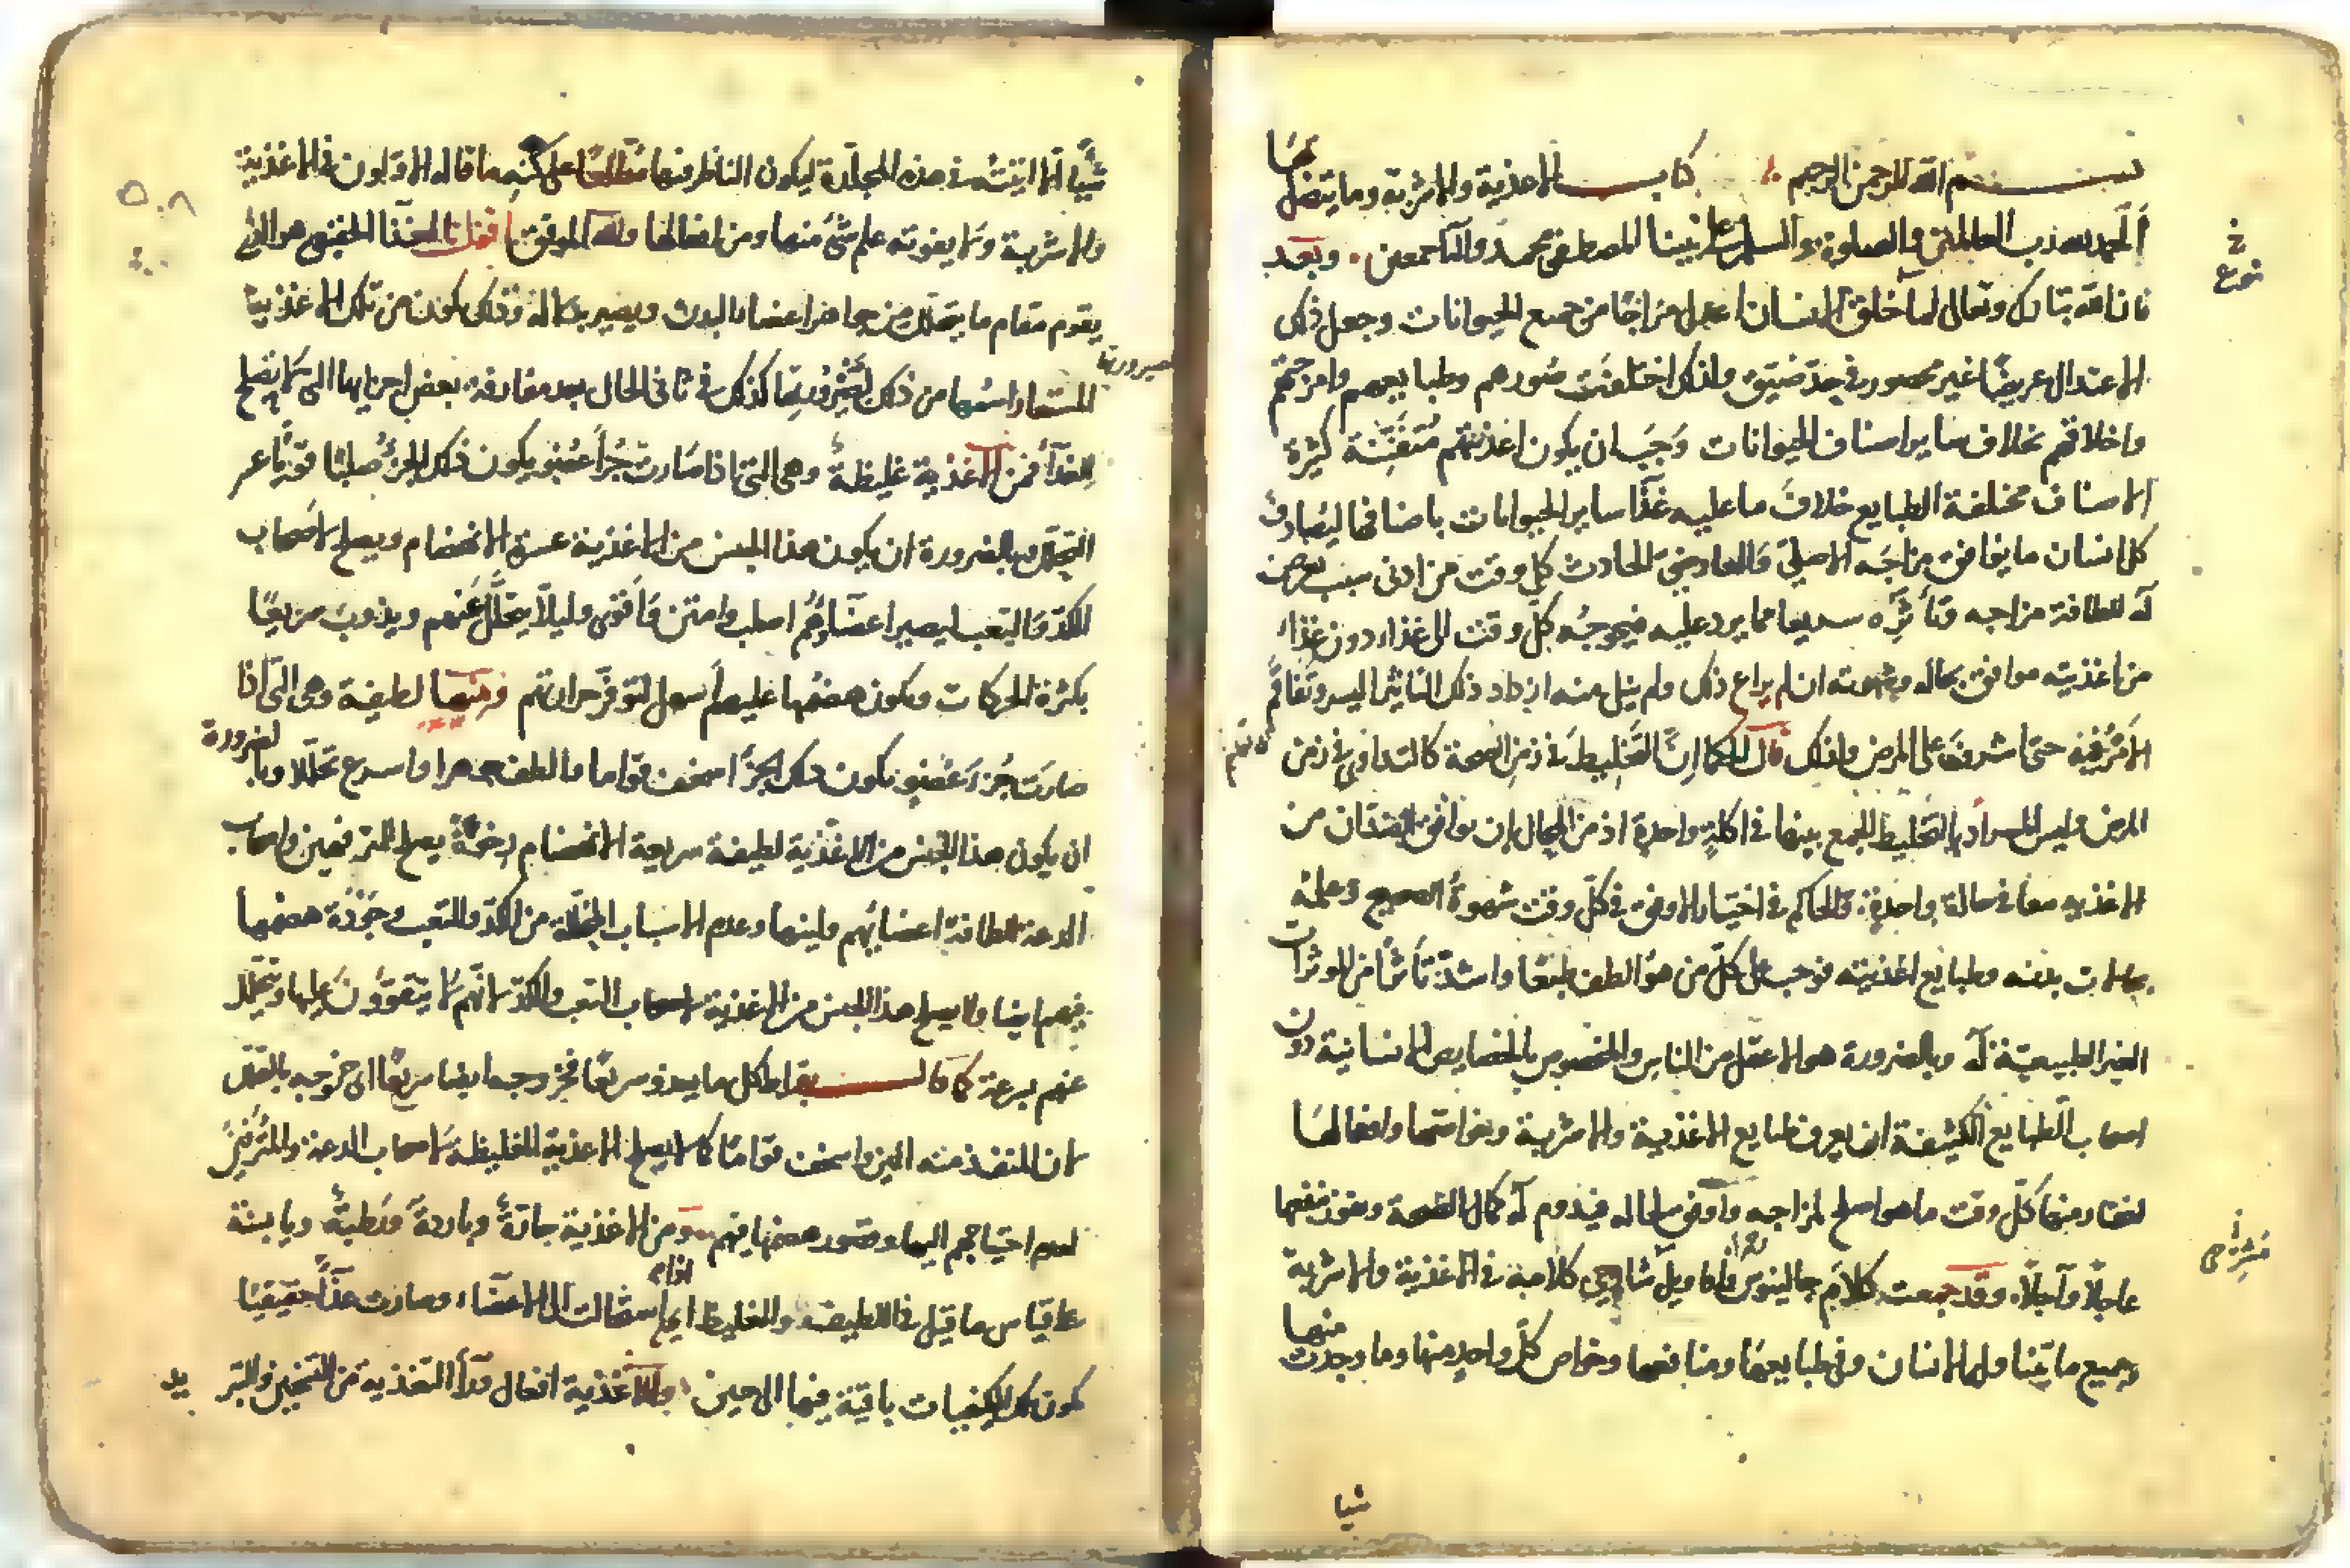 بسم الله الرحمن الرحيم كتاب الاغذية والاشربة وما يتصل بها
الحمد لله رب العالمين والصلوة والسلم على نبينا المصطفى محمد وآله اجمعين وبعد
فان الله تبارك وتعالى لما خلق الانسان اعدل مزاجًا من جميع الحيوانات وجعل ذلك
الاعتدال عريضًا غير محصور في حد ضيق ولذلك اختلفت صورهم وطبايعهم وامزجتهم
واخلاقهم بخلاف ساير اصناف الحيوانات وَجَبَ ان يكون اغذيتهم متفننة كثيرة
الاصناف مختلفة الطبايع خلافَ ما عليه غذا ساير الحيوانات باصنافها ليصادف
كل انسان ما يوافق مزاجَه الاصلي والعارضي الحادث كل وقت من ادنى سبب يعرض
له للطافة مزاجه وتأثره سريعا مما يرد عليه فيحوجه كل وقت الى غذاء دون غذاء
من اغذيته موافق بحاله وشهوته ان لم يراع ذلك ولم ينل منه ازداد ذلك التاثير اليسير وتفاقم
الامر فيه حتى اشرف على المرض ولذلك قال الحكما ان التخليط في زمن الصحة كالتداوي في زمن
المرض وليس المراد بالتخليط الجمع بينها في اكلةٍ واحدةٍ اذ من المحال ان يوافق الضدان من
الاغذيه معا في حالة واحدةٍ والحاكم في اختيار الاوفق في كل وقت شهوةُ الصحيح وعلمه
بحالات بدنه وطبايع اغذيته فوجب على كل من هو الطف طبعًا واشد تأثرًا من الموثرات
الغير الطبيعية له وبالضرورة هو الاعقل من الناس والمخصوص بالخصايص الانسانية دون
اصحاب الطبايع الكثيفة ان يعرف طبايع الاغذية والاشربة وخواصها وافعالها
ليختار منها كل وقت ما هو اصلح لمزاجه واوفق لحاله فيدوم له كمال الصحة ويفوز بنفعها
عاجلًا وآجلًا وقد جمعت كلام جالينوس واقاويل شارحي كلامه في الاغذية والاشربة
وجميع ما يتناوله الانسان وفي طبايعها ومنافعها وخواص كل واحد منها وما وجدت منها
شيا
شيًا الا اثبته في هذه المجلدة ليكون الناظر فيها مطلعًا على كنه ما قاله الاولون في الاغذية
والاشربة ولا يفوته علم شئ منها ومن افعالها والله الموفق فصل الغذا الحقيقي هو الذي
يقوم مقام ما يتحلل من جواهر اعضاء البدن ويصير بحاله وذلك يكون من تلك الاغذية
المستعار اسمها من ذلك لصيرورتها كذلك في ثاني الحال بعد مفارقة بعض اجزايها التي لا يصلح
للغذأ فمن الاغذية غليظةٌ وهي التي اذا صارت جزأ عضو يكون ذلك الجزؤ صلبًا قويًا عسر
التحلل وبالضرورة ان يكون هذا الجنس من الاغذية عسرة الانهضام ويصلح لاصحاب
الكد والتعب ليصير اعضاؤهم اصلب وامتن واقوى وليلا يتحلل عنهم ويذوب سريعًا
بكثرة الحركات ويكون هضمها عليهم اسهل لتوفر حرارتهم ومنها لطيفة وهي التي اذا
صارت جزء عضو يكون ذلك الجزأ اسخف قواما والطف جوهرا واسرع تحللا وبالضرورة
ان يكون هذا الجنس من الاغذية لطيفة سريعة الانهضام رخصةً يصلح للمترفهين واصحاب
الدعة للطافة اعضايهم ولينها وعدم الاسباب المحللة من الكد والتعب وجودة هضمها
فيهم ايضا ولا يصلح هذا الجنس من الاغذية لاصحاب التعب والكد لانهم لا يتقوون عليها ويتحلل
عنهم بسرعة كما قال بقراط كل ما يغذو سريعًا فخروجه ايضا سريعًا اي خروجه بالتحلل
لان المنفذ منه الين واسخف قوامًا كما لا يصلح الاغذية الغليظة لاصحاب الدعة والمترفين
لعدم احتياجهم اليها وقصور هضمها فيهم ومن الاغذية حارةٌ وباردةٌ ورطبةٌ ويابسة
على قياس ما قيل في اللطيفة والغليظة اي اذا استحالت الى الاعضاء وصارت غذأً حقيقيًا
يكون تلك الكيفيات باقية فيها الى حين وللاغذية افعال ورأ التغذية من التسخين والتبر
يد